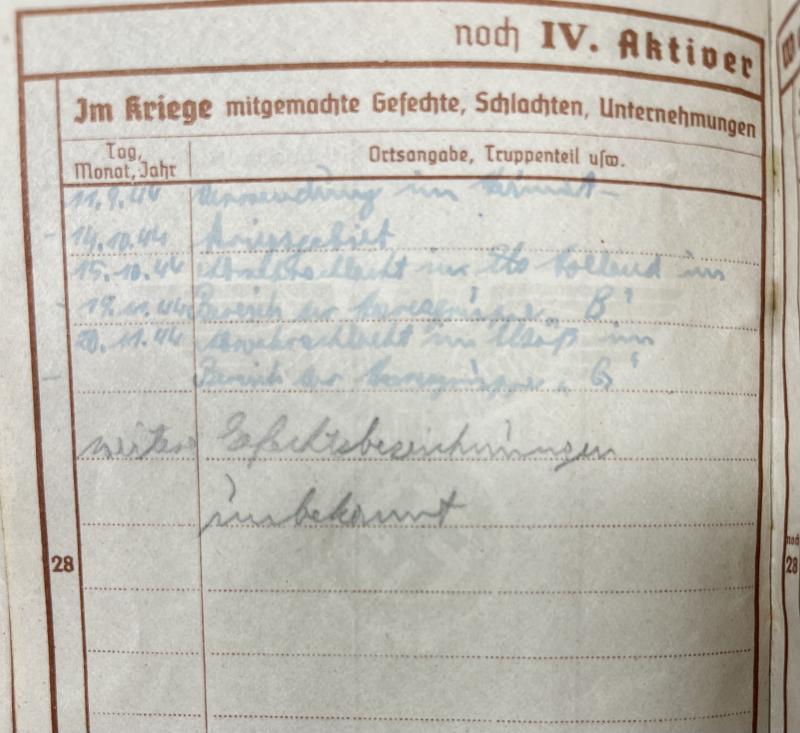 noch IV. Aktiver
Im Kriege mitgemachte Gefechte, Schlachten, Unternehmungen
Tag,
Monat, Jahr
Ortsangabe, Truppenteil usw.
11.9.44 Verwendung im Heimat-
- 14.10.44 kriegsgebiet
15.10.44 Abwehrschlacht in Holland im
- 19.11.44 Bereich der Heeresgruppe „B“
20.11.44 Abwehrschlacht im Elsaß im
- Bereich der Heeresgruppe „G“
weitere Gefechtsbezeichnungen
unbekannt
28
noch
28